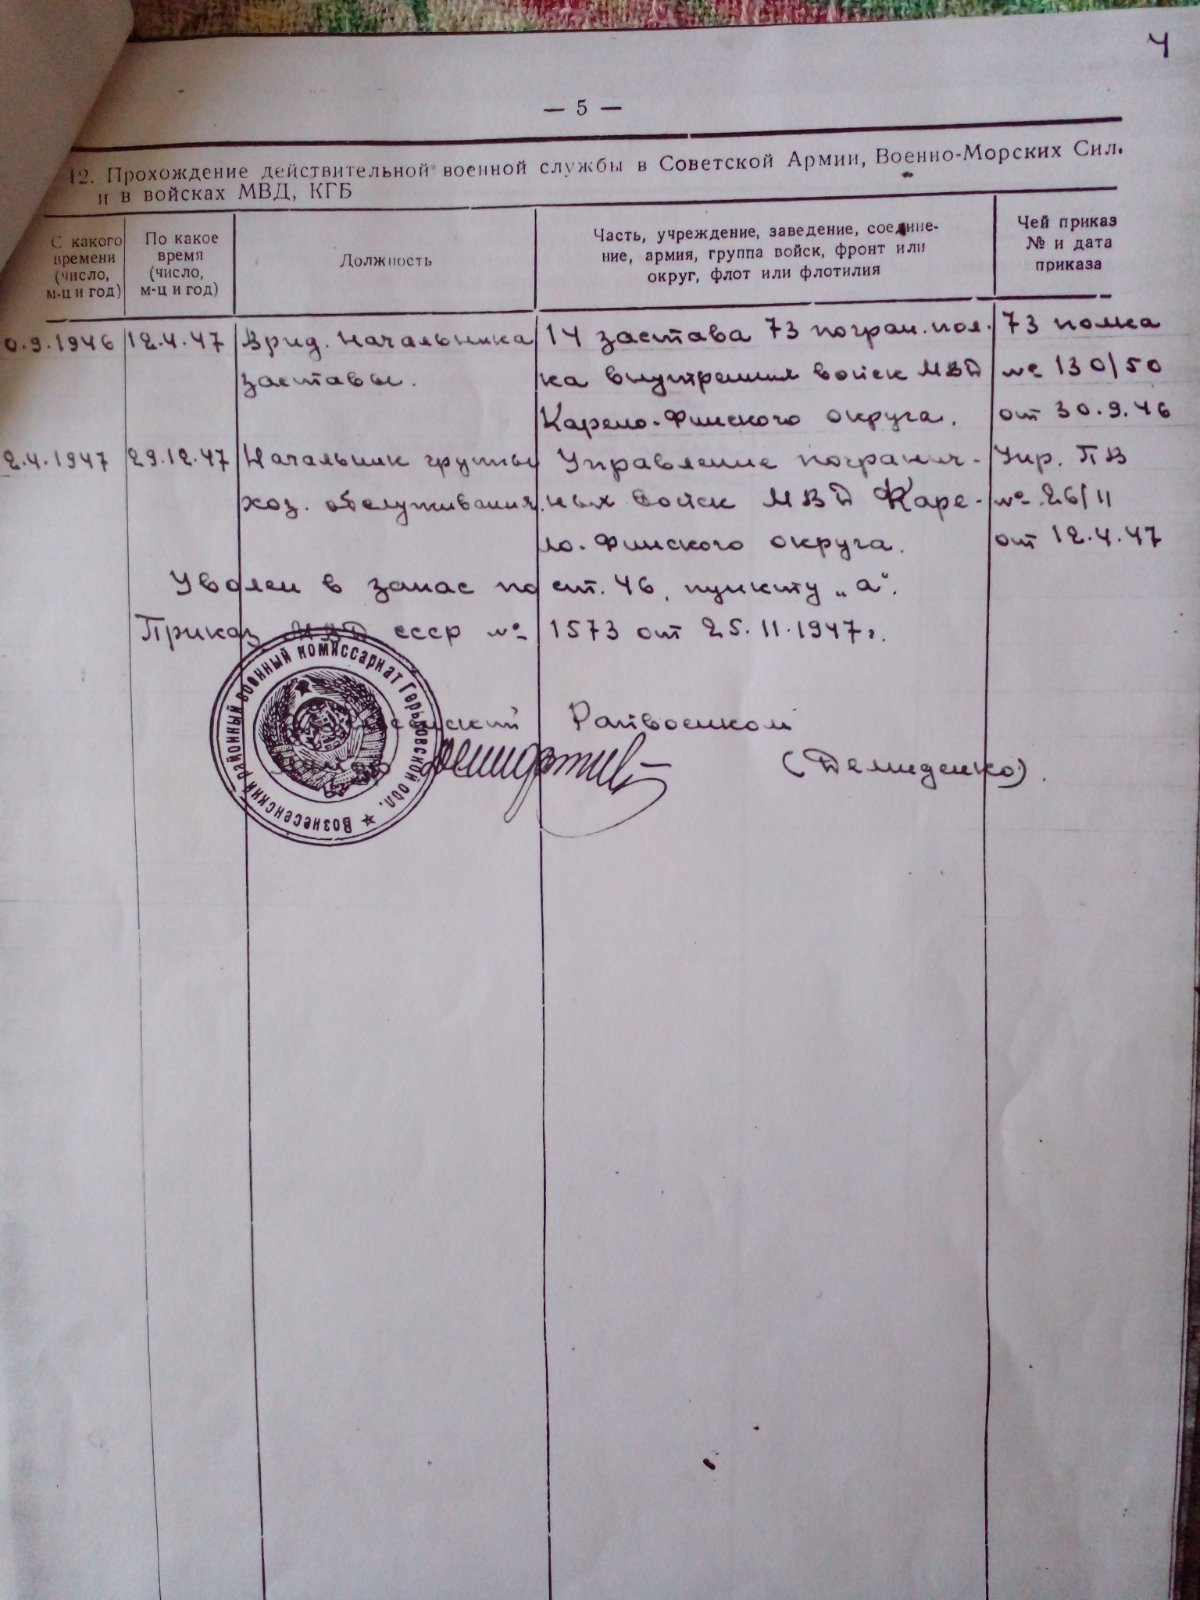 4
— 5 —
12. Прохождение действительной военной службы в Советской Армии, Военно-Морских Сил.
и в войсках МВД, КГБ
С какого времени (число, м-ц и год)
По какое время (число, м-ц и год)
Должность
Часть, учреждение, заведение, соедине-
ние, армия, группа войск, фронт или
округ, флот или флотилия
Чей приказ
№ и дата
приказа
0.9.1946 12.4.47 Врид. Начальника 14 застава 73 погран. пол- 73 полка
заставы. ка внутренних войск МВД № 130/50
Карело-Финского округа. от 30.9.46
2.4.1947 29.12.47 Начальник группы Управление погранич- Упр. ПВ
хоз. обслуживания. ных войск МВД Каре- № 26/11
ло-Финского округа. от 12.4.47
Уволен в запас по ст. 46, пункту „а".
Приказ МВД СССР № 1573 от 25.11.1947г.
Райвоенком
(Демиденко).
Вознесенский районный военный комиссариат Горьковской обл.